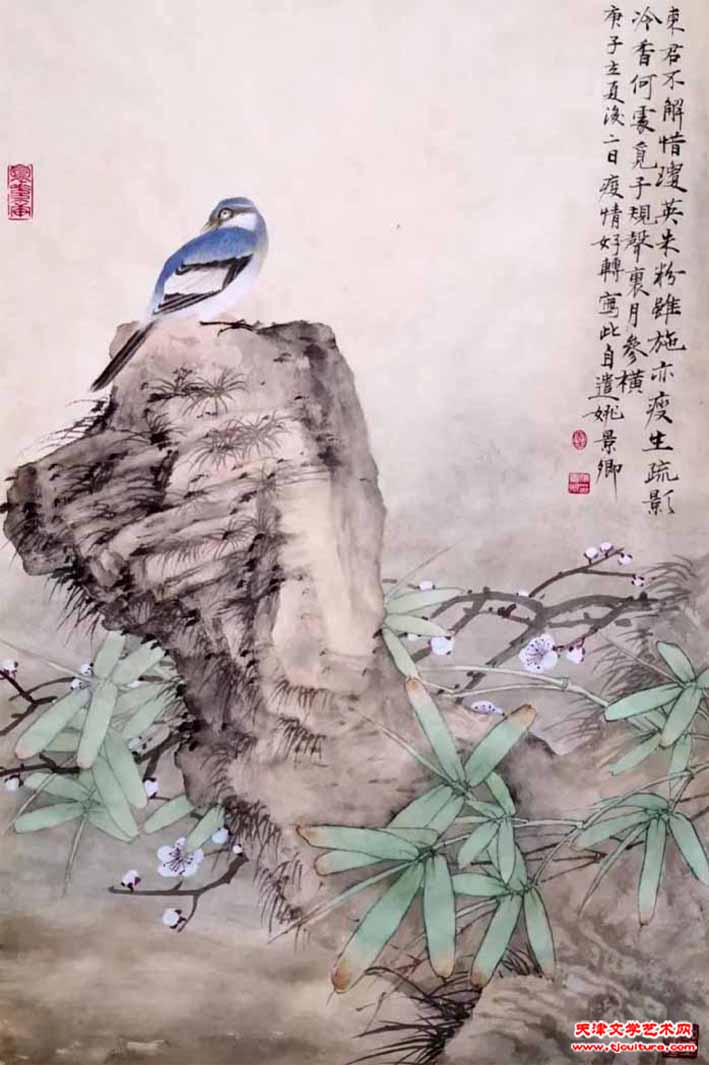 東君不解惜瓊英朱粉雖施亦瘦生疏影
冷香何處覓子規聲裏月參橫
庚子立夏後二日疫情好轉寫此自遣姚景卿
天津文学艺术网
www.tjculture.com